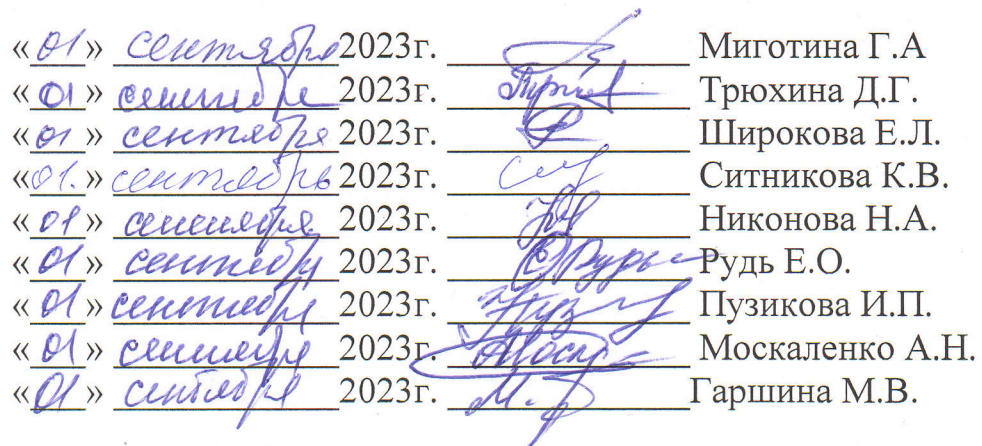 «01» сентября 2023г. Миготина Г.А
«01» сентября 2023г. Трюхина Д.Г.
«01» сентября 2023г. Широкова Е.Л.
«01.» сентябрь 2023г. Ситникова К.В.
«01» сентября 2023г. Никонова Н.А.
«01» сентября 2023г. Рудь Е.О.
«01» сентября 2023г. Пузикова И.П.
«01» сентября 2023г. Москаленко А.Н.
«01» сентября 2023г. Гаршина М.В.